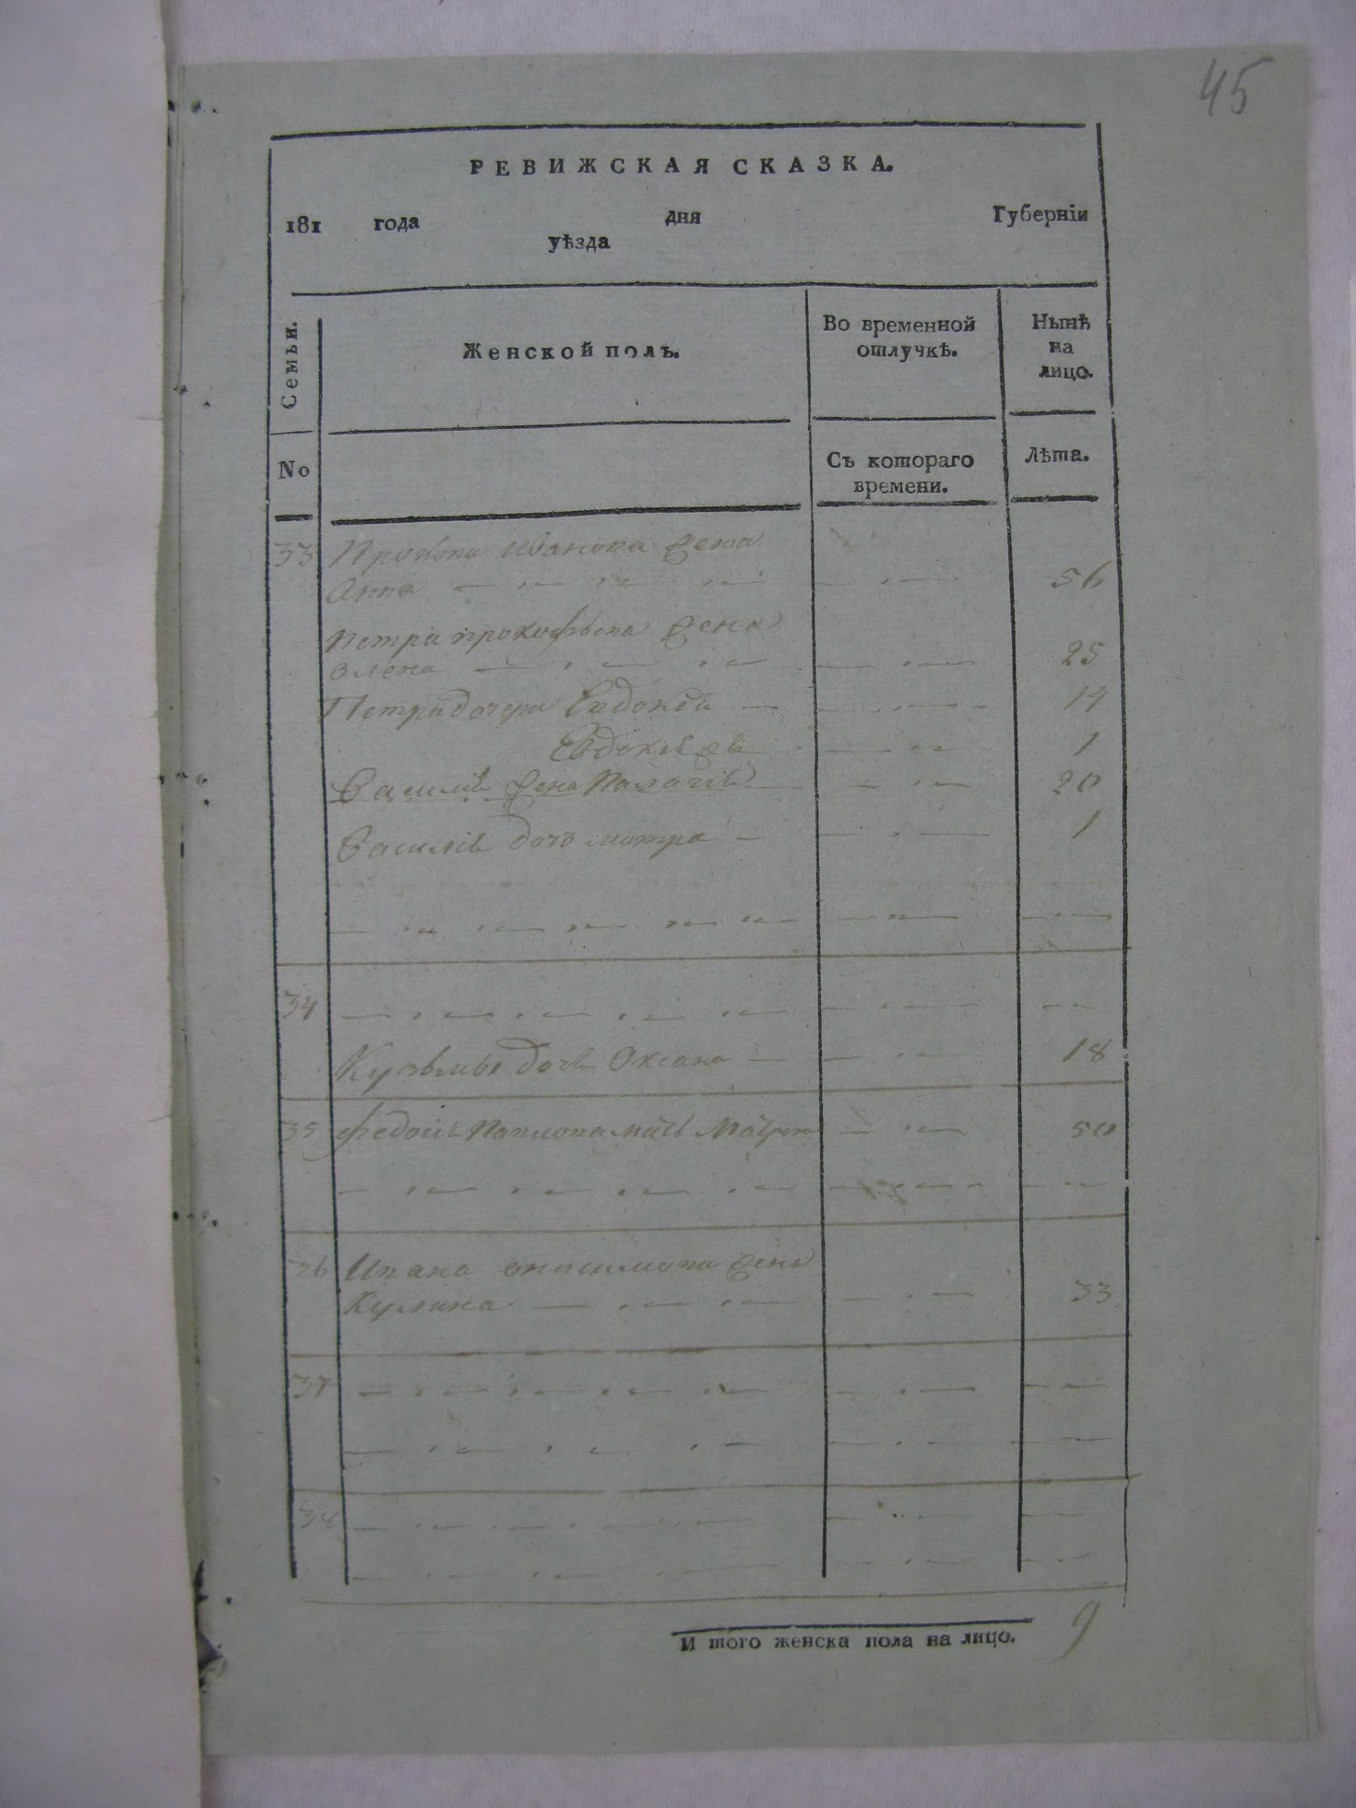 45
РЕВИЖСКАЯ СКАЗКА.
181 года дня Губерніи
уѣзда
Семьи. Женской полъ. Во временной отлучкѣ. Нынѣ на лицо.
No Съ котораго времени. Лѣта.
33 Прокопа Иванова жена
Анна 56
Петра Прокофьева жена
Олена 25
Петра дочери Евдокія 14
1
Василія жена Палагія 20
Василія дочь мотра 1
34
Кузьмы дочь Оксана 18
35 Федоса Павлова мать Матрона 50
36 Ивана Онасимова жена
Кулина 33
37
38
И того женска пола на лицо. 9